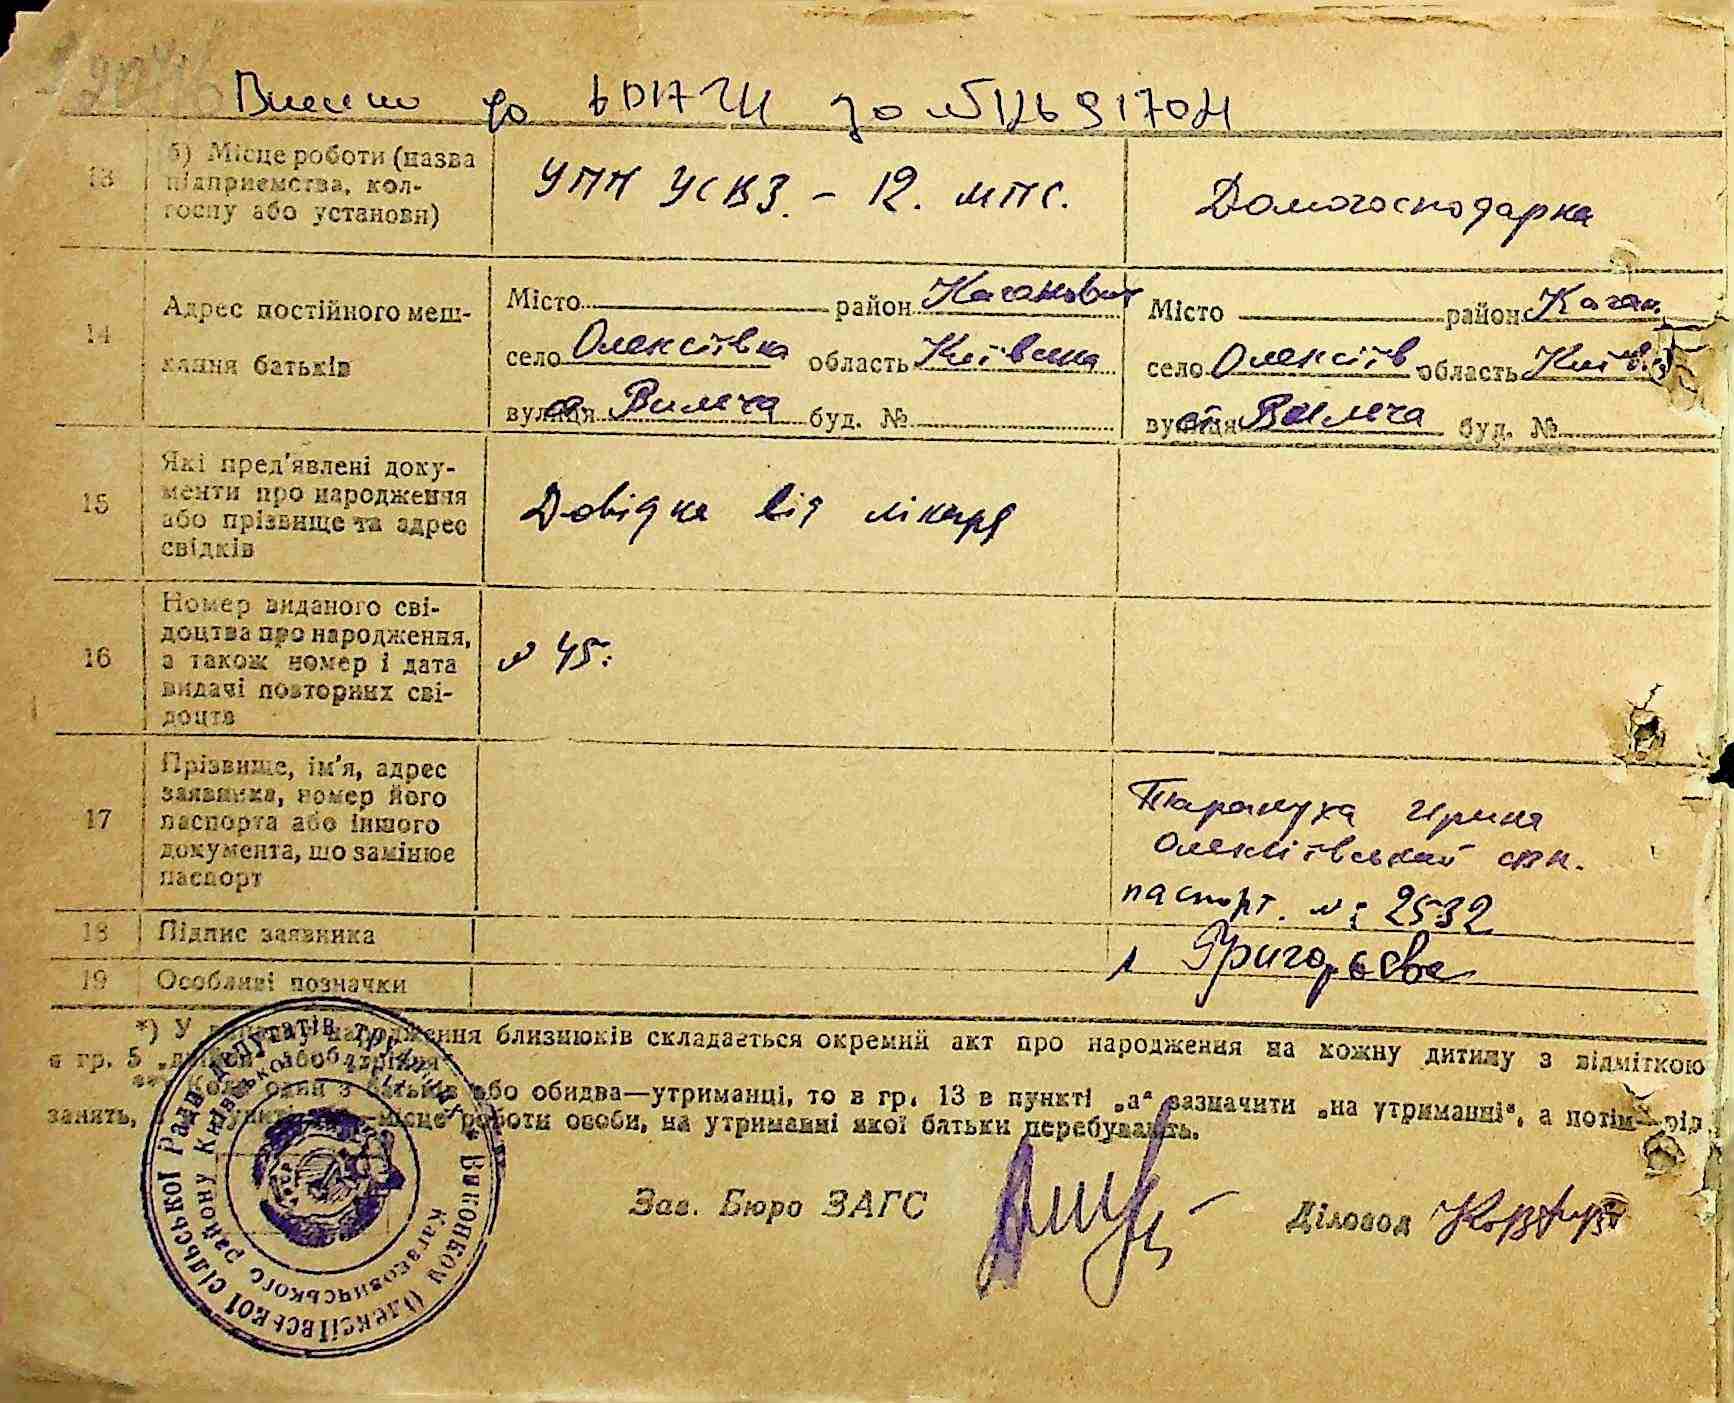 Внесено до ВДАГЦ
13
б) Місце роботи (назва підприємства, колгоспу або установи)
УПП УСВЗ. - 12. МПС.
Домогосподарка
14
Адрес постійного мешкання батьків
Місто район Каганович
село Олексіївка область Київська
вулиця ст Вильча буд. №
Місто район Каган.
село Олексіїв область Київ.
вулиця ст Вильча буд. №
15
Які пред'явлені документи про народження або прізвище та адрес свідків
Довідка від лікаря
16
Номер виданого свідоцтва про народження, а також номер і дата видачі повторних свідоцтв
№ 45.
17
Прізвище, ім'я, адрес заявника, номер його паспорта або іншого документа, що замінює паспорт
Тарануха Ирина
Олексіївський
паспорт. №: 2532
18
Підпис заявника
Григорьева
19
Особливі позначки
*) У випадку народження близнюків складається окремий акт про народження на кожну дитину з відміткою
в гр. 5 „двійня" або „трійня"
**) Коли один з батьків або обидва—утриманці, то в гр. 13 в пункті „а" зазначити „на утриманні", а потім рід
занять, в пункті місце роботи особи, на утриманні якої батьки перебувають.
Виконком Олексіївської сільської Ради депутатів трудящих
Кагановичського району Київської області
Зав. Бюро ЗАГС
Діловод